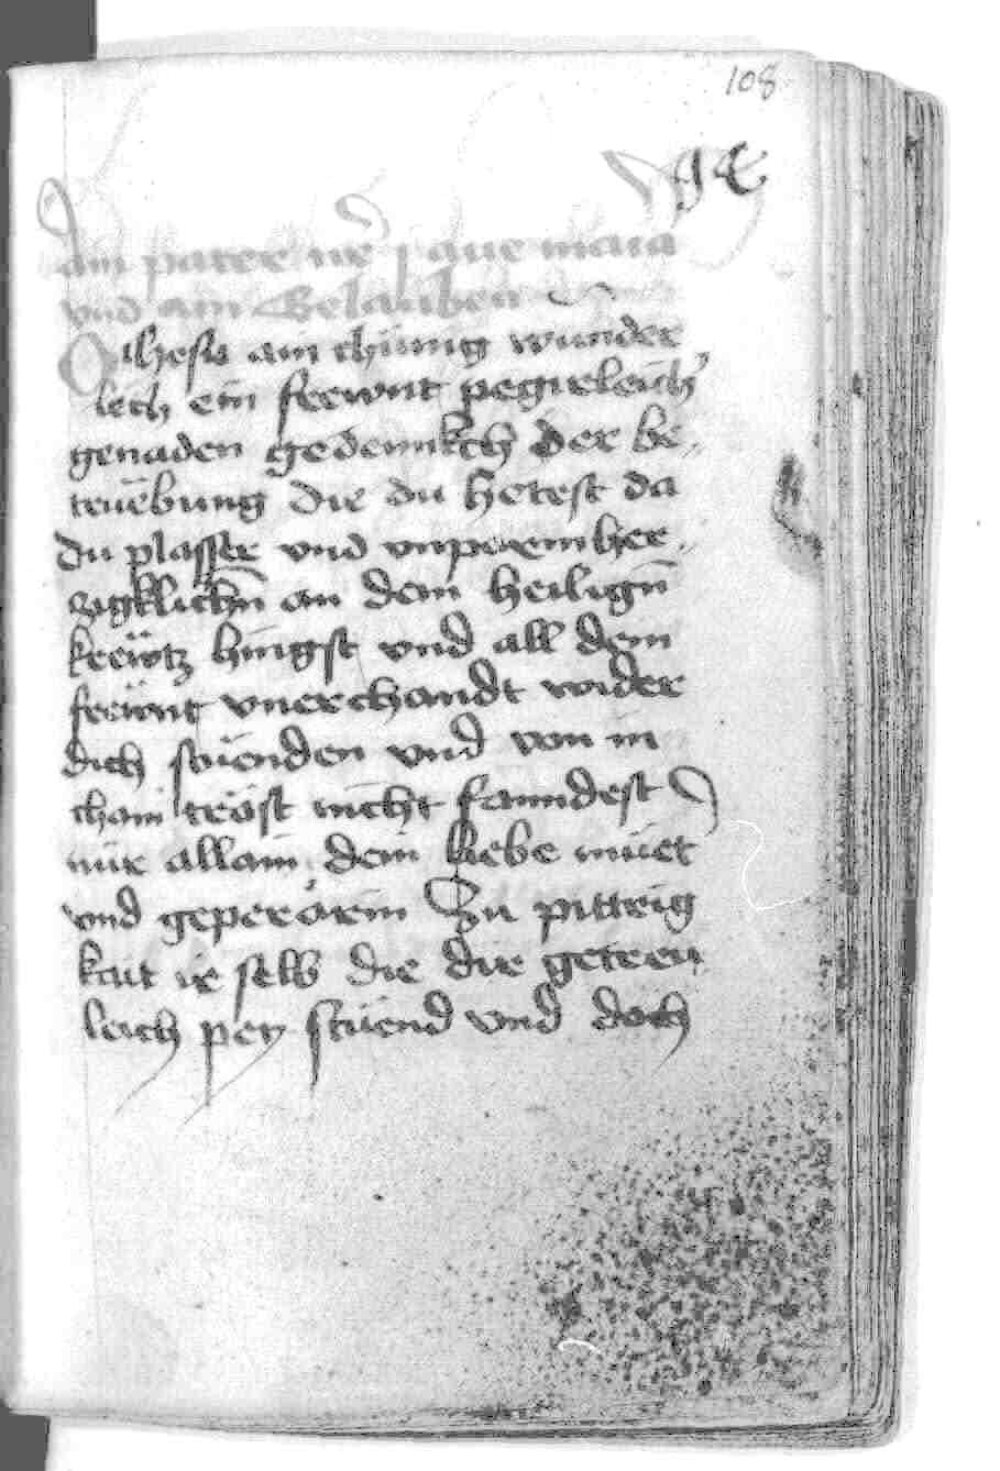 108
Ain pater nr̄ aue maria
vnd ain Gelauben
O ihesu ain chünig wunder
lich ein frewnt pegirleich
genaden gedennkch der be
trüebung die du hetest da
du plasser vnd vnparmher
zigklichn̄ an dem heilign̄
kreẅtz hingst vnd all dein
freẅnt vnerchandt wider
dich stüenden vnd von in
chain tröst nicht fanndest
nür allain dein liebe müet
vnd gepererin zu pittrig
kait ir selb die dir getreu
leich pey stüend vnd doch